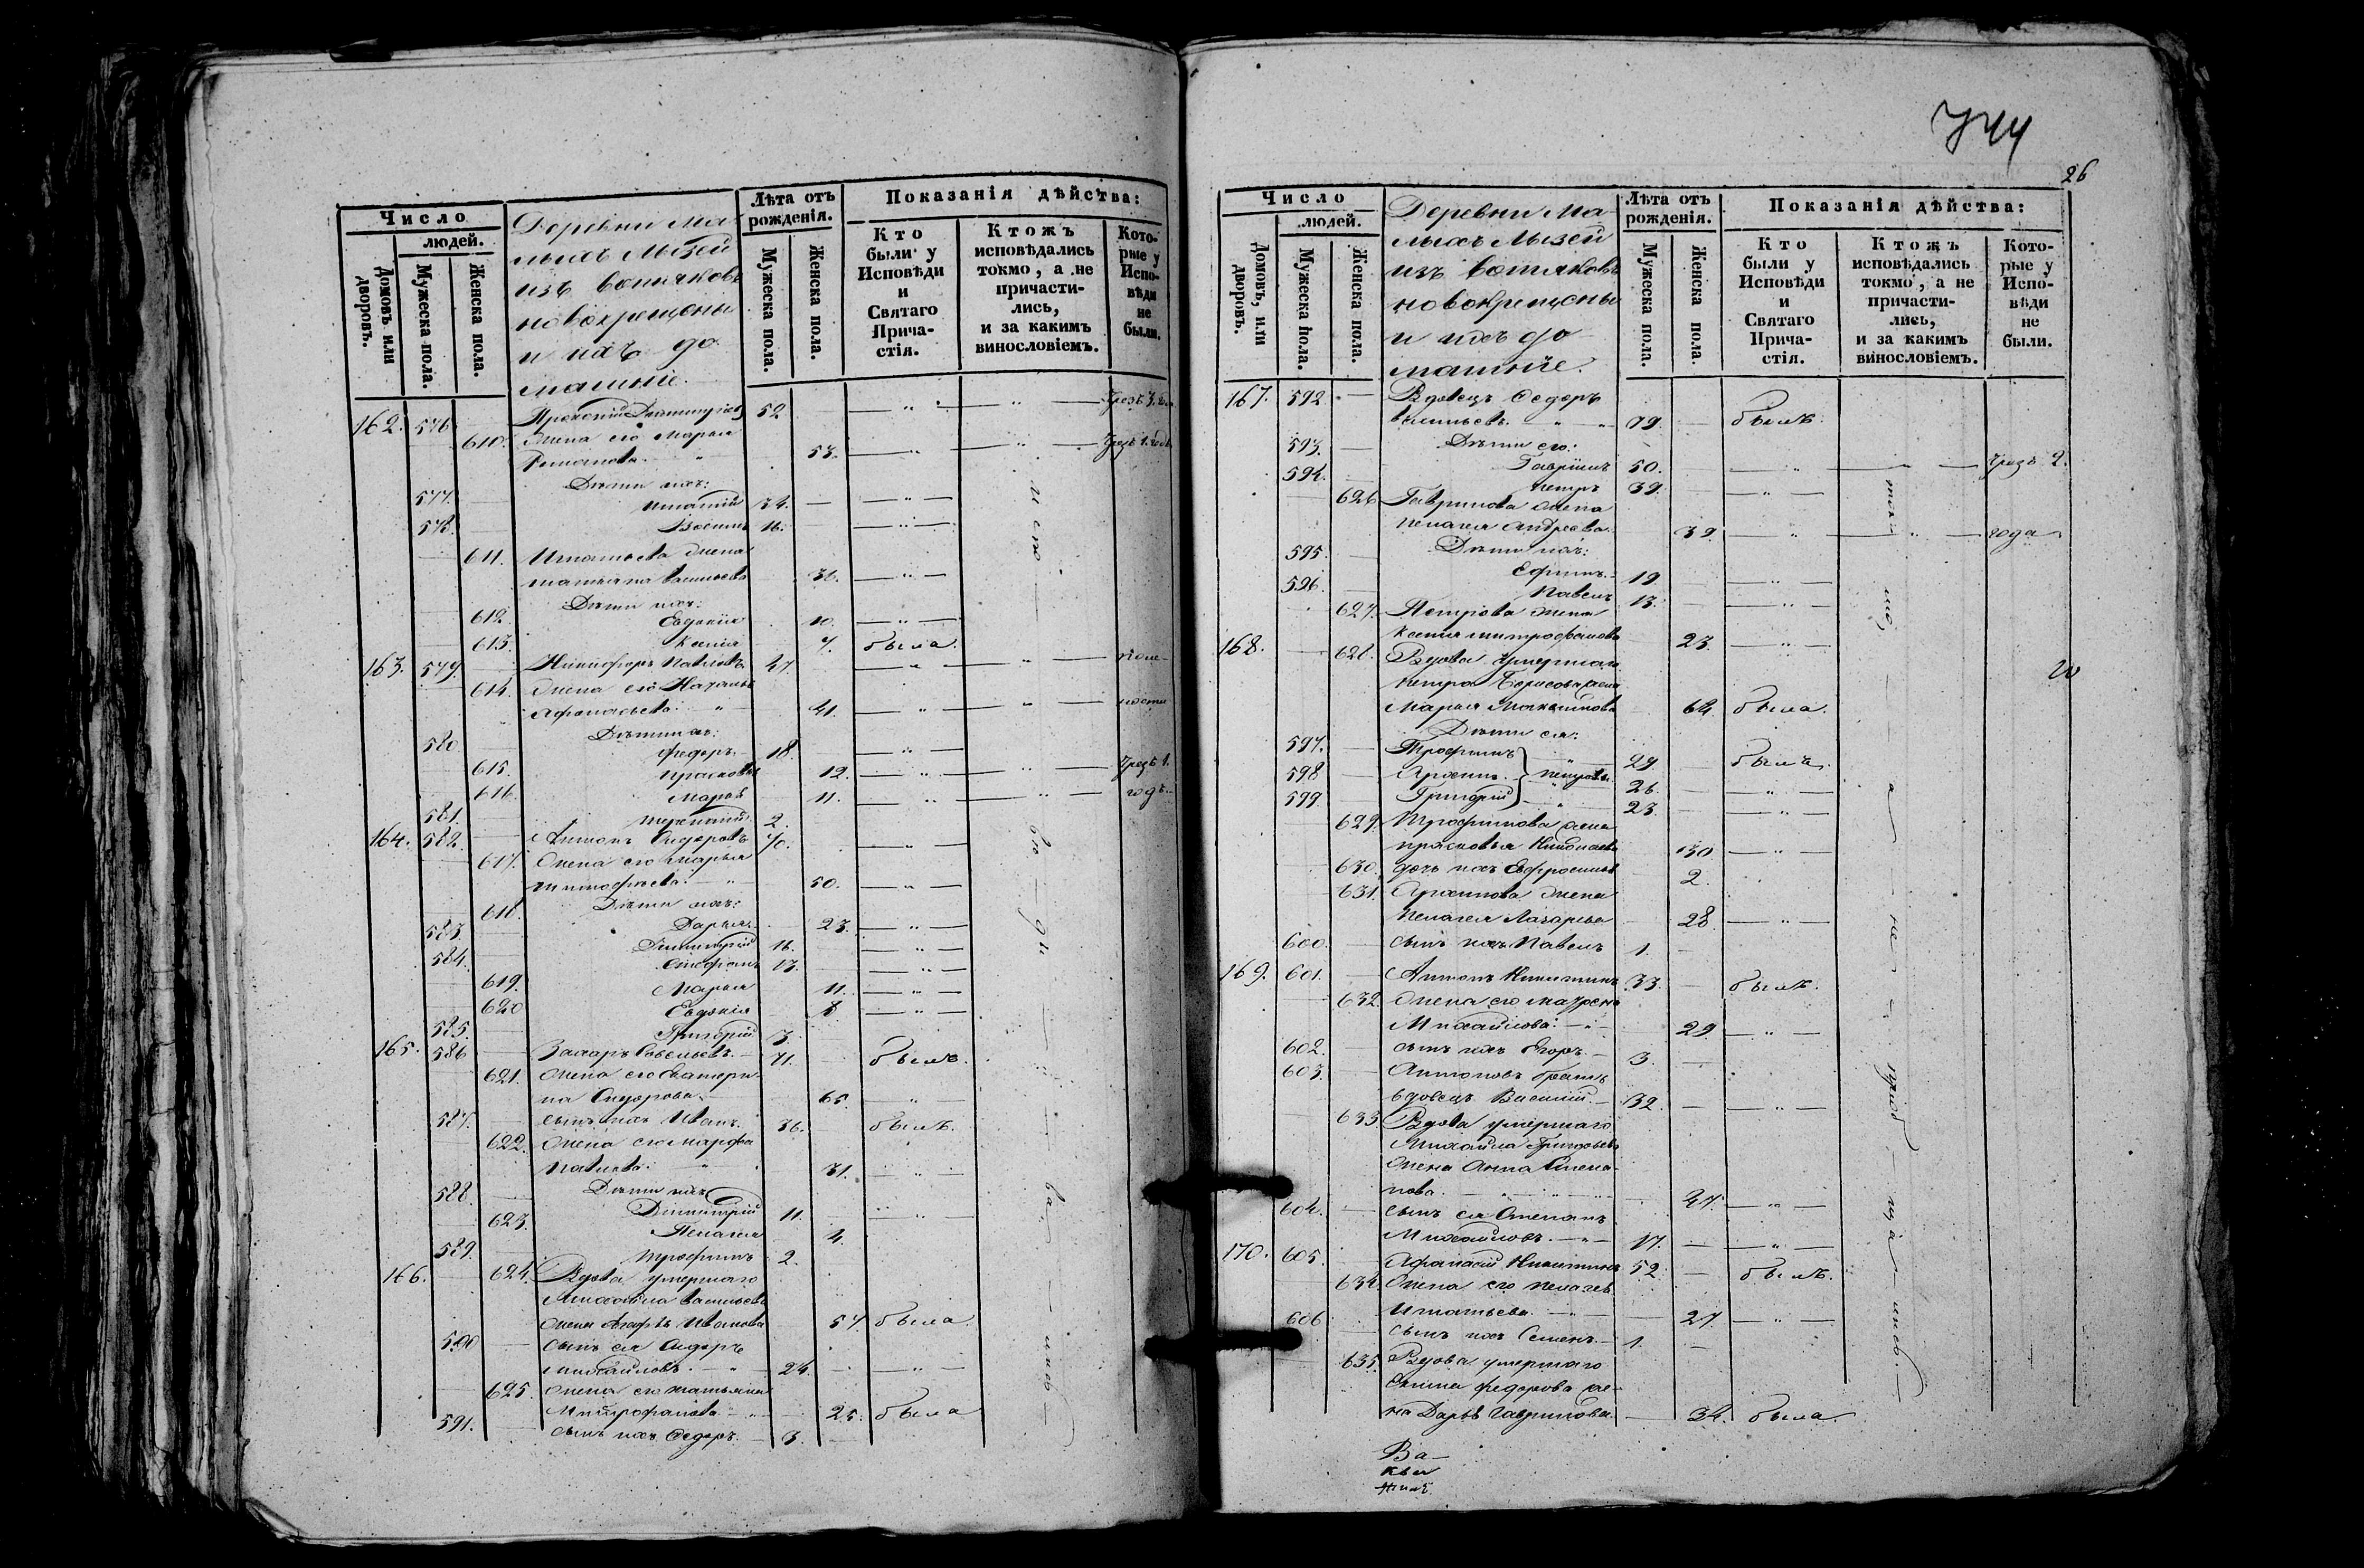 Число
людей.
Домовъ или дворовъ.
Мужеска пола.
Женска пола.
Деревни Ма-
лыхъ Лызей
изъ вотяковъ
новокрещены
и ихъ до
машніе.
Лѣта отъ рожденія.
Мужеска пола.
Женска пола.
Показанія дѣйства:
Кто были у Исповѣди и Святаго Прича-стія.
Ктожъ исповѣдались токмо, а не причасти-лись, и за какимъ винословіемъ.
Кото-рые у Испо-вѣди не были.
162. 576. Димитріевъ 52.
610. Жена его Марья
53.
Дѣти ихъ:
577. Игнатій 34.
578. 16.
611. Игнатьева жена
Татьяна Васильева 36.
Дѣти ихъ:
612. Евдокія 10.
613. Ксенія 7. была.
163. 579. Никифоръ Павловъ 47.
614. Жена его Наталья
Афанасьева 41.
Дѣти ихъ:
580. Федоръ 18.
615. Прасковья 12. Чрезъ 1.
616. Марья 11. годъ.
581. 2.
164. 582. Антонъ Сидоровъ 70.
617. Жена его Марья
Тимофѣева 50.
Дѣти ихъ:
618. Дарья 23.
583. Димитрій 16.
584. Стефанъ 13.
619. Марья 11.
620. Евдокія 8.
585. Григорій 3.
165. 586. Захаръ Савельевъ 71. былъ.
621. Жена его Екатери-
на Сидорова 65.
587. сынъ ихъ Иванъ 36. былъ.
622. Жена его Марфа
Павлова 31.
Дѣти ихъ
588. Димитрій 11.
623. Пелагея 4.
589. Трофимъ 2.
166. 624. Вдова умершаго
Михаила Васильева
жена Агафья Иванова 57. была
590. Сынъ ея Сидоръ
Михайловъ 24.
625. Жена его Татьяна
Митрофанова 25. была
591. сынъ ихъ Федоръ 3.
744
26
Число
людей.
Домовъ, или дворовъ.
Мужеска пола.
Женска пола.
Деревни Ма-
лыхъ Лызей
изъ вотяковъ
новокрещены
и ихъ до
машніе.
Лѣта отъ рожденія.
Мужеска пола.
Женска пола.
Показанія дѣйства:
Кто были у Исповѣди и Святаго Прича-стія.
Ктожъ исповѣдались токмо, а не причасти-лись, и за какимъ винословіемъ.
Кото-рые у Испо-вѣди не были.
167. 592. Вдовецъ Федоръ
Васильевъ 79. былъ.
593. Дѣти его:
Гавріилъ 50. Чрезъ 2.
594. Петръ 39.
626. Гаврилова жена
Пелагея Андреева 39. года
595. Дѣти ихъ:
Ефимъ 19.
596. Павелъ 13.
627. Петрова жена
Ксенія Митрофанова 23.
168. 628. Вдова умершаго
Петра Борисова жена
Марья Максимова 64. была.
Дѣти ея:
597. Трофимъ 29. былъ.
598 Архипъ Петровы 26.
599. Григорій 23.
629. Трофимова жена
Прасковья Николаева 30
630. дочь ихъ Евфросинья 2.
631. Архипова жена
Пелагея Лазарева 28.
600. сынъ ихъ Павелъ 1.
169. 601. Антонъ Никитинъ 33. былъ.
632. Жена его Матрена
Михайлова 29.
602. сынъ ихъ Егоръ 3.
603. Антоновъ братъ
вдовецъ Василій 32.
633 Вдова умершаго
Михаила Григорьева
жена Анна Степа-
нова 47.
604. сынъ ея Степанъ
Михайловъ 17.
170. 605. Афанасій Никитинъ 52. былъ.
634. Жена его Пелагея
Игнатьева 27.
606 сынъ ихъ Семенъ 1.
635. Вдова умершаго
Федорова же-
на Дарья Гаврилова 34. была.